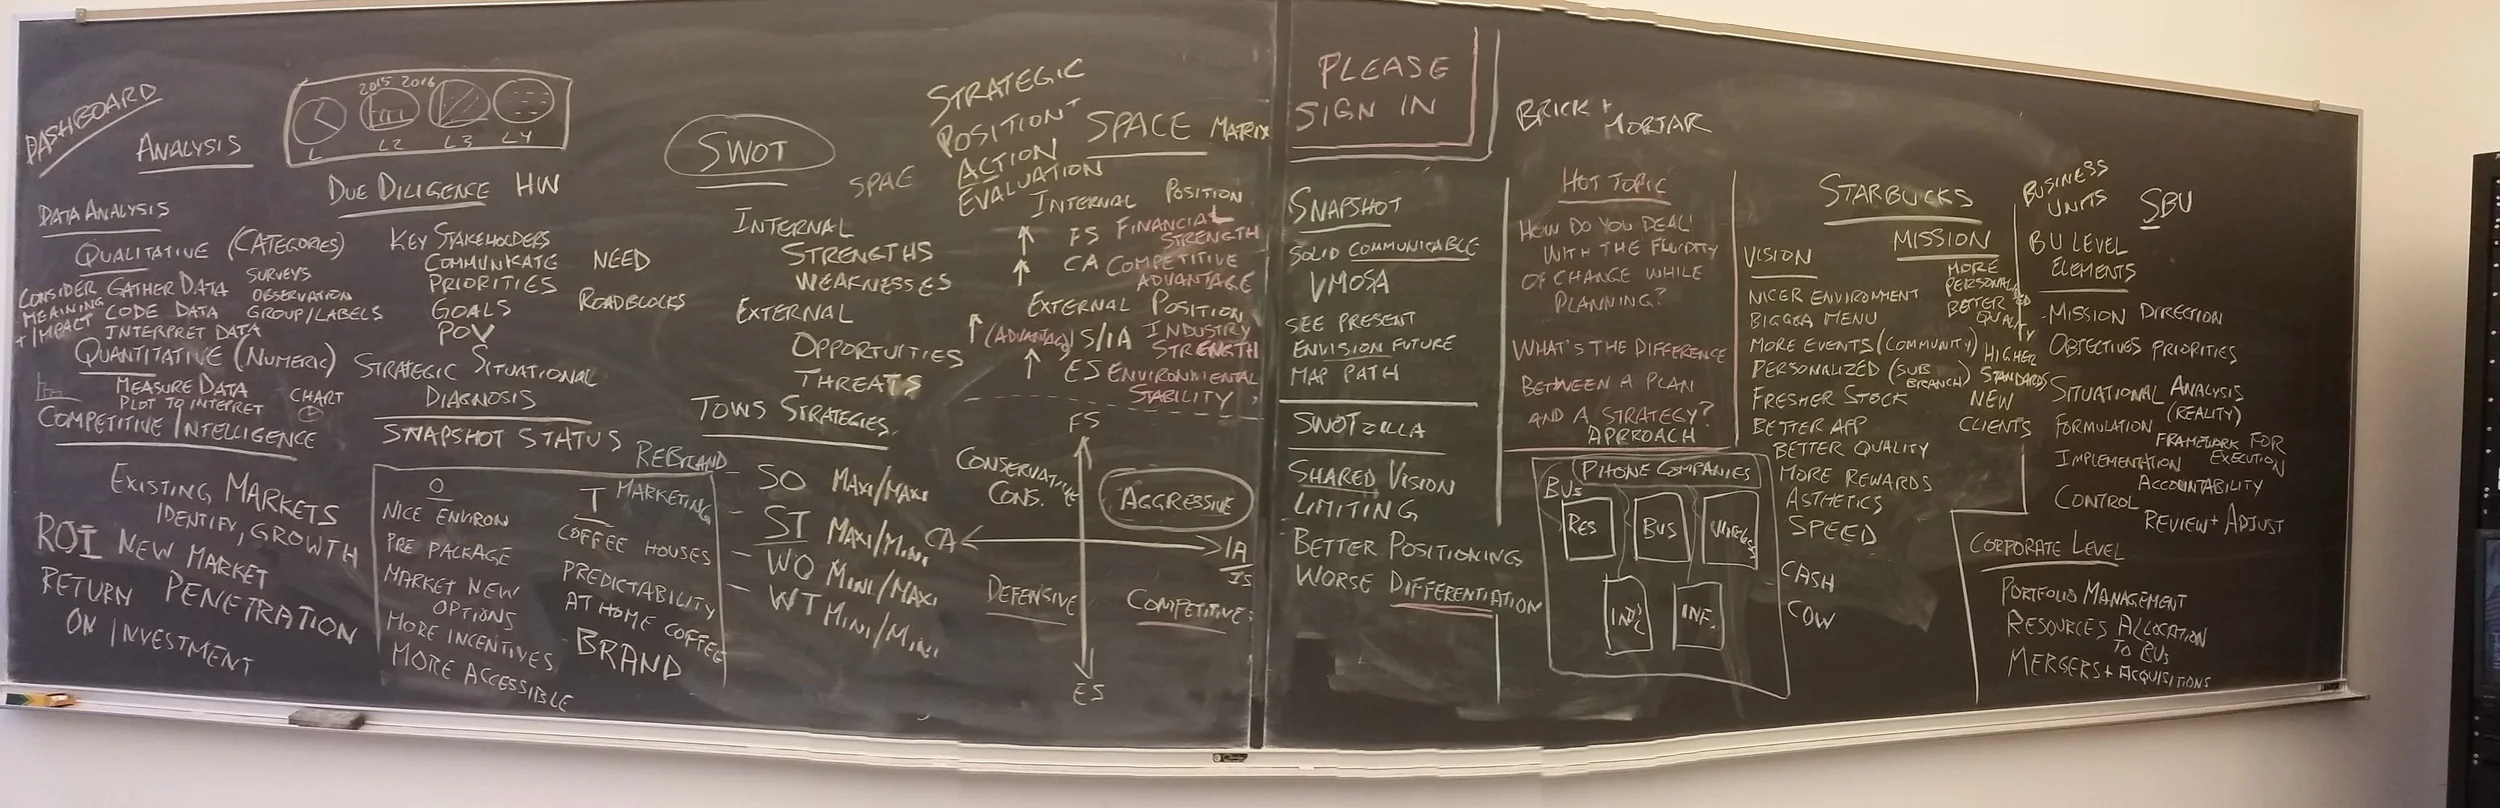 DASHBOARD
ANALYSIS
2015 2016
L L2 L3 L4
DUE DILIGENCE HW
DATA ANALYSIS
QUALITATIVE (CATEGORIES)
CONSIDER MEANING + IMPACT
GATHER DATA
SURVEYS
OBSERVATION
CODE DATA GROUP/LABELS
INTERPRET DATA
QUANTITATIVE (NUMERIC)
MEASURE DATA
PLOT TO INTEPRET
CHART
COMPETITIVE INTELLIGENCE
EXISTING MARKETS
IDENTIFY, GROWTH
ROI NEW MARKET
RETURN PENETRATION
ON INVESTMENT
KEY STAKEHOLDERS
COMMUNICATE
PRIORITIES
GOALS
POV
NEED
ROADBLOCKS
STRATEGIC SITUATIONAL
DIAGNOSIS
SNAPSHOT STATUS
O
NICE ENVIRON
PRE PACKAGE
MARKET NEW
OPTIONS
MORE INCENTIVES
MORE ACCESSIBLE
REBRAND
T MARKETING
COFFEE HOUSES
PREDICTABILITY
AT HOME COFFEE
BRAND
SWOT
INTERNAL
STRENGTHS
WEAKNESSES
EXTERNAL
OPPORTUITIES
THREATS
TOWS STRATEGIES
SO MAXI/MAXI
ST MAXI/MINI
WO MINI/MAXI
WT MINI/MINI
SPAE
STRATEGIC
POSITION +
ACTION
EVALUATION
SPACE MATRIX
INTERNAL POSITION
FS FINANCIAL
STRENGTH
CA COMPETITIVE
ADVANTAGE
EXTERNAL POSITION
(ADVANTAGE) S/IA INDUSTRY
STRENGTH
ES ENVIRONMENTAL
STABILITY
FS
CONSERVATIVE
CONS.
AGGRESSIVE
CA
IA
IS
DEFENSIVE
COMPETITIVE
ES
PLEASE
SIGN IN
SNAPSHOT
SOLID COMMUNICABLE
VMOSA
SEE PRESENT
ENVISION FUTURE
MAP PATH
SWOTZILLA
SHARED VISION
LIMITING
BETTER POSITIONING
WORSE DIFFERENTIATION
BRICK +
MORTAR
HOT TOPIC
HOW DO YOU DEAL
WITH THE FLUIDITY
OF CHANGE WHILE
PLANNING?
WHAT'S THE DIFFERENCE
BETWEEN A PLAN
AND A STRATEGY?
APPROACH
PHONE COMPANIES
BUs
RES
BUS
WIRELESS
IND'L
INF.
STARBUCKS
VISION
NICER ENVIRONMENT
BIGGER MENU
MORE EVENTS (COMMUNITY)
PERSONALIZED (SUB
BRANCH)
FRESHER STOCK
BETTER APP
BETTER QUALITY
MORE REWARDS
ASTHETICS
SPEED
CASH
COW
MISSION
MORE
PERSONALIZED
BETTER
QUALITY
HIGHER
STANDARDS
NEW
CLIENTS
BUSINESS
UNITS
SBU
BU LEVEL
ELEMENTS
MISSION DIRECTION
OBJECTIVES PRIORITIES
SITUATIONAL ANALYSIS
(REALITY)
FORMULATION
FRAMEWORK FOR
IMPLEMENTATION EXECUTION
ACCOUNTABILITY
CONTROL
REVIEW + ADJUST
CORPORATE LEVEL
PORTFOLIO MANAGEMENT
RESOURCES ALLOCATION
TO BUs
MERGERS + ACQUISITIONS